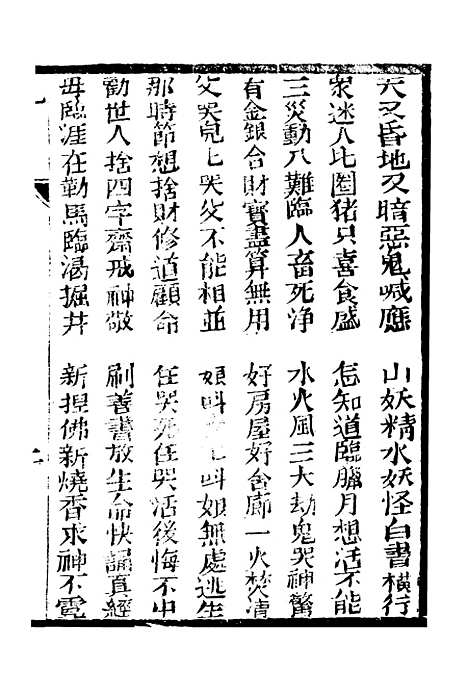 天又昏地又暗惡鬼喊應　山妖精水妖怪白晝橫行
衆迷人比圈猪只喜食盛　怎知道臨臘月想活不能
三災動八難臨人畜死净　水火風三大劫鬼哭神驚
有金銀合財寶盡算無用　好房屋好舍廊一火焚清
父哭兒七哭父不能相並　娘叫　七叫娘無處逃生
那時節想捨財修道顧命　任哭死任哭活後悔不中
勸世人捨四字齋戒神敬　刷善書放生命快誦真經
毋臨涯在勒馬臨渴掘井　新捏佛新燒香求神不霓
二